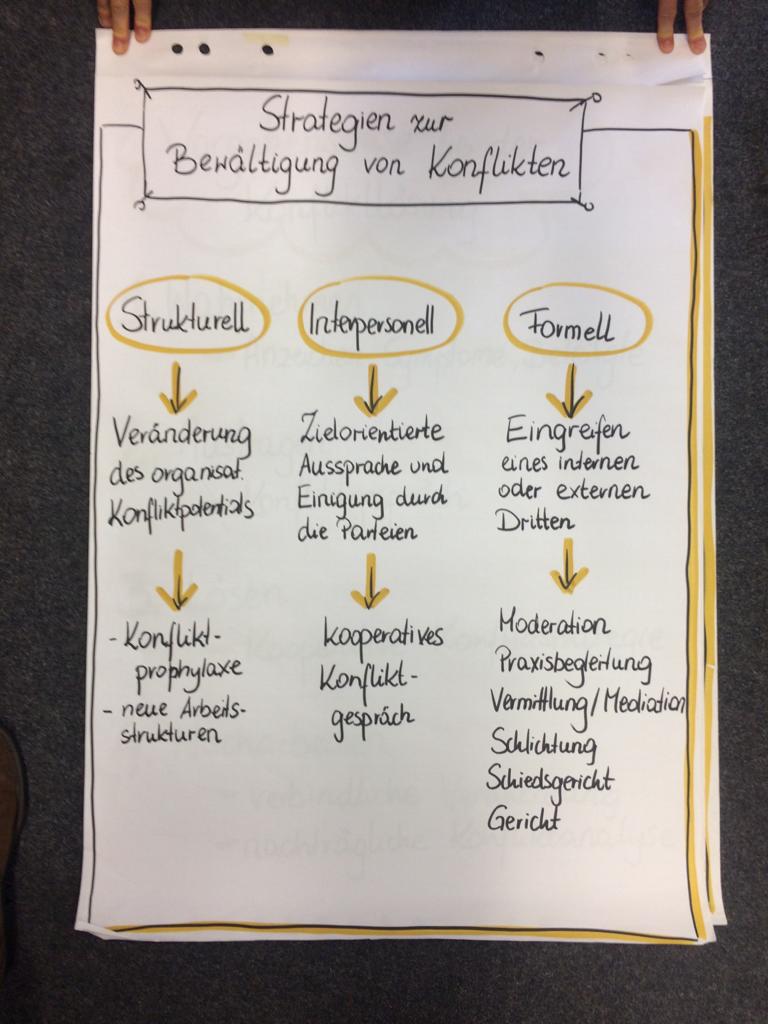 Strategien zur
Bewältigung von Konflikten
Strukturell
Veränderung
des organisat.
Konfliktpotentials
- Konflikt-
prophylaxe
- neue Arbeits-
strukturen
Interpersonell
Zielorientierte
Aussprache und
Einigung durch
die Parteien
kooperatives
Konflikt-
gespräch
Formell
Eingreifen
eines internen
oder externen
Dritten
Moderation
Praxisbegleitung
Vermittlung/Mediation
Schlichtung
Schiedsgericht
Gericht